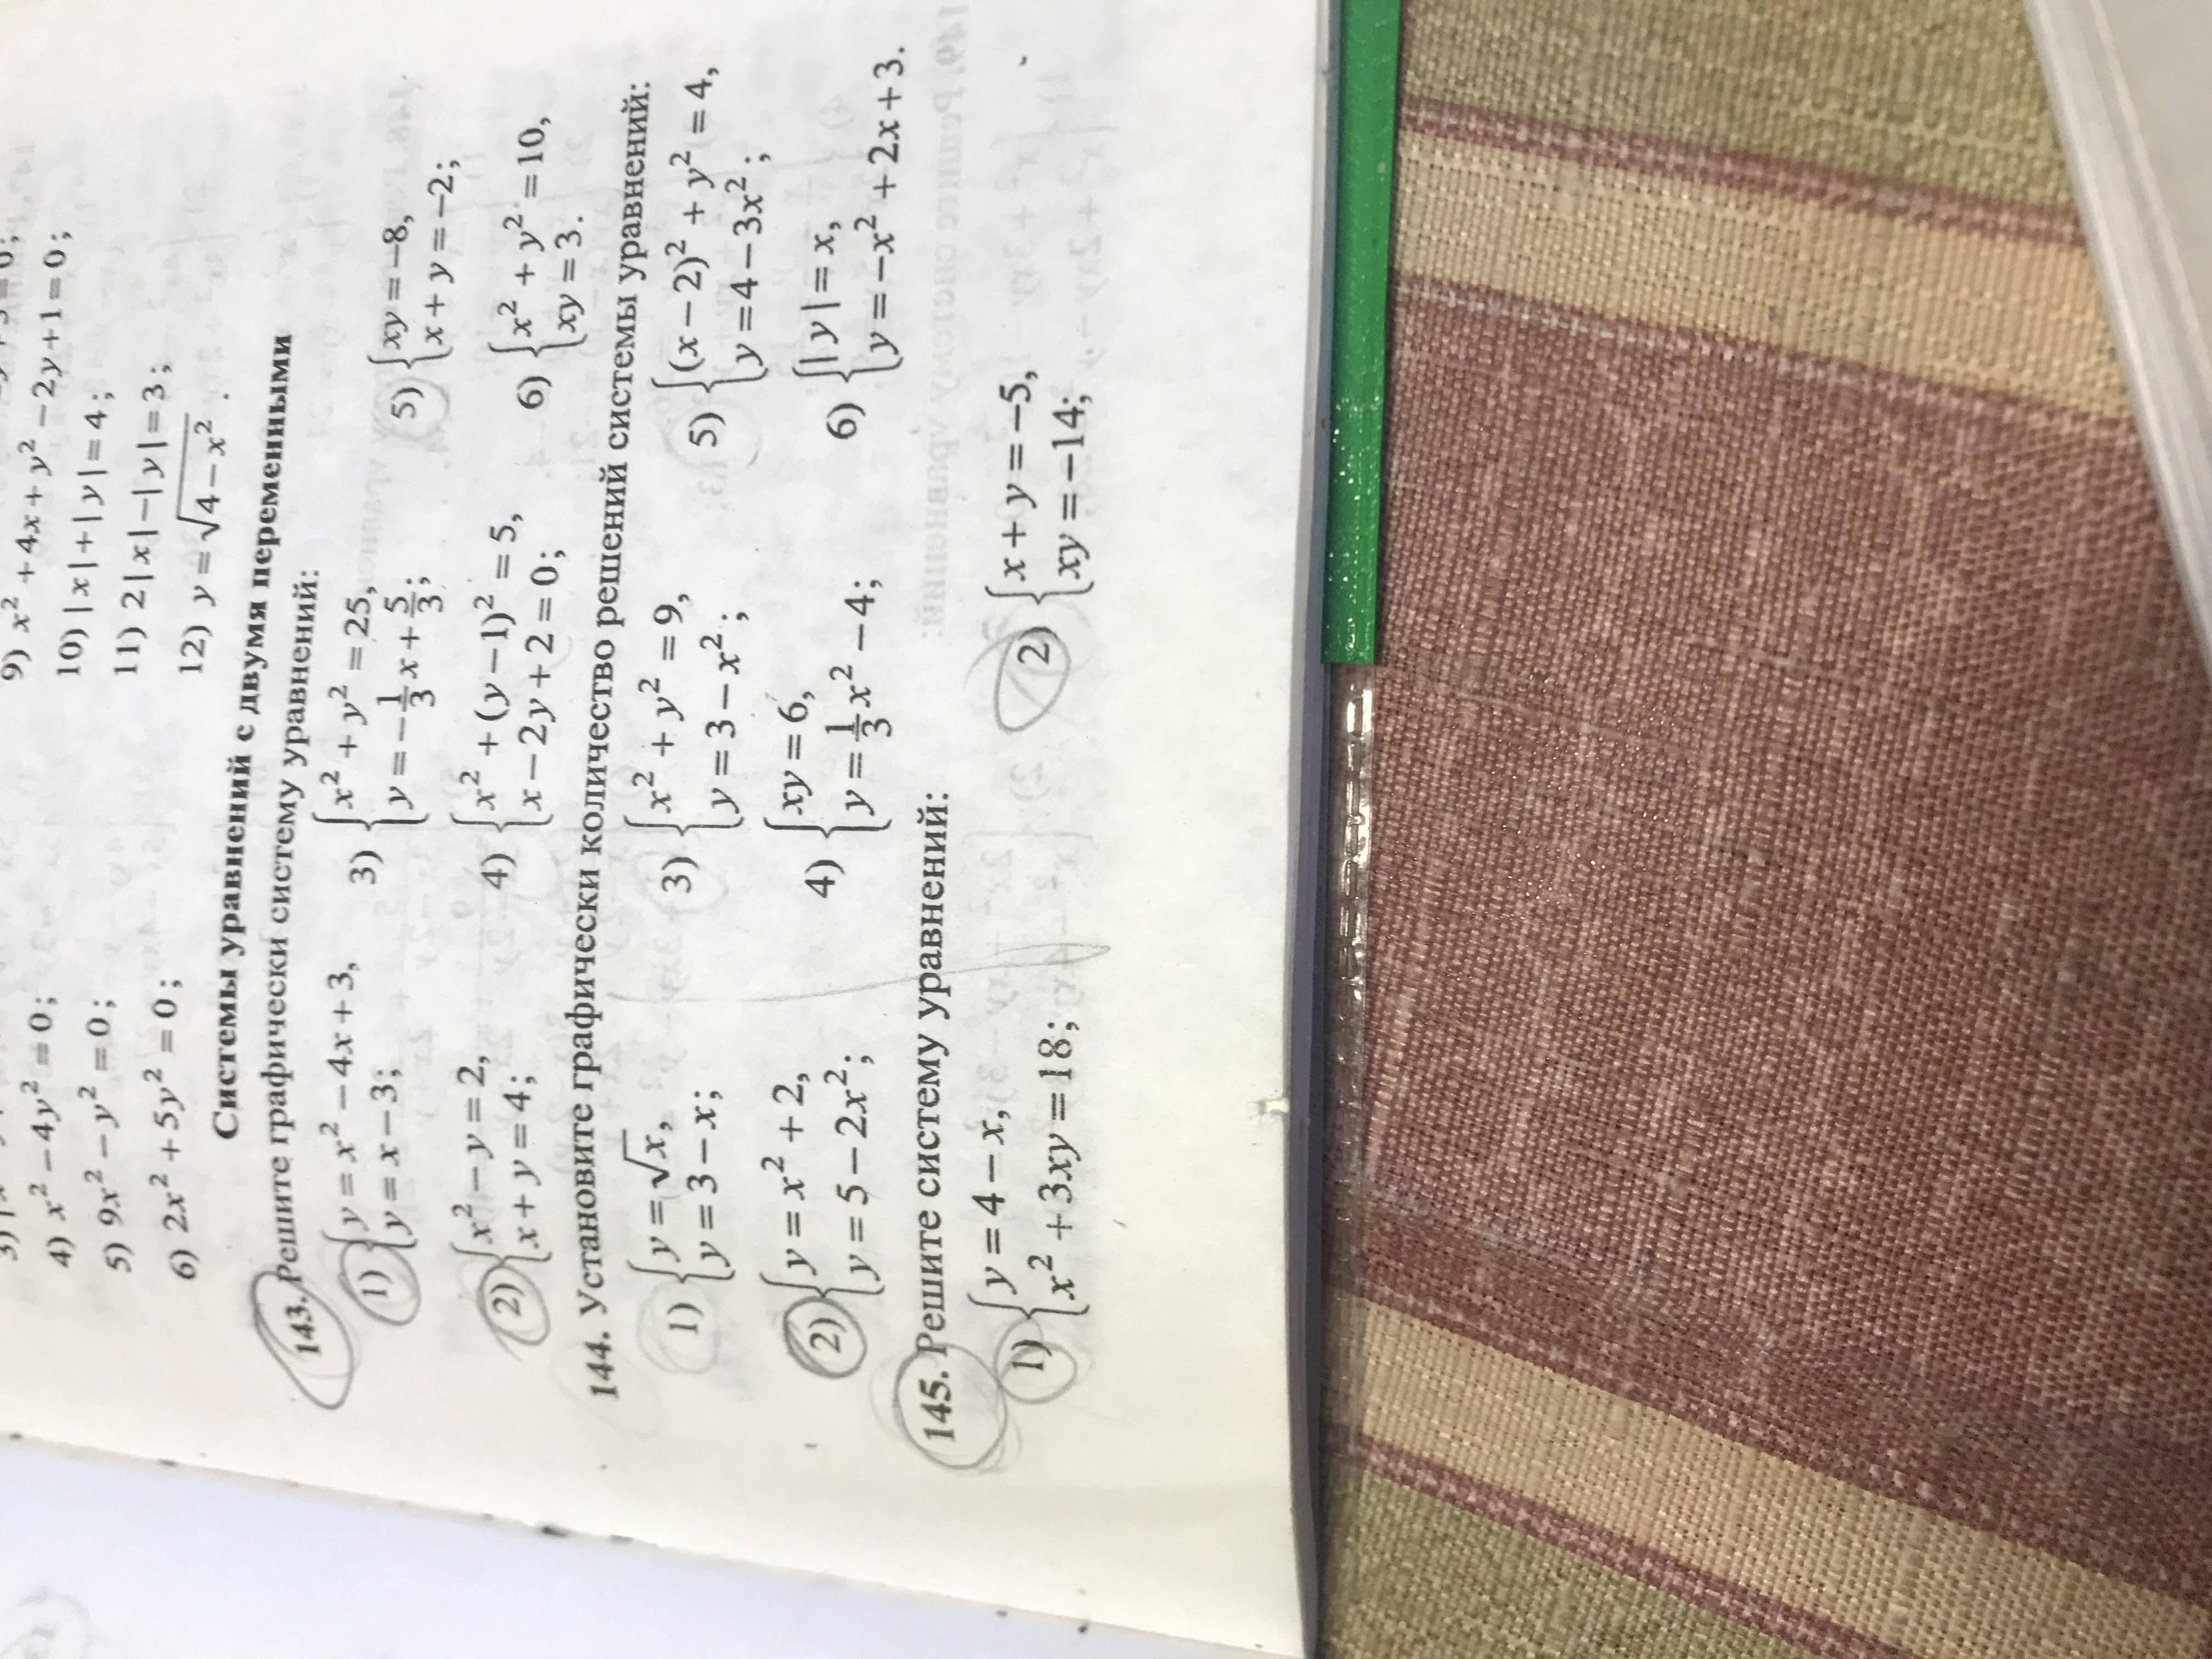 4) x² − 4y² = 0;
5) 9x² − y² = 0;
6) 2x² + 5y² = 0;
9) x² + 4x + y² − 2y + 1 = 0;
10) |x| + |y| = 4;
11) 2|x| − |y| = 3;
12) y = √(4 − x²).
Системы уравнений с двумя переменными
143. Решите графически систему уравнений:
1) { y = x² − 4x + 3,
y = x − 3;
2) { x² − y = 2,
x + y = 4;
3) { x² + y² = 25,
y = −1/3 x + 5/3;
4) { x² + (y − 1)² = 5,
x − 2y + 2 = 0;
5) { xy = −8,
x + y = −2;
6) { x² + y² = 10,
xy = 3.
144. Установите графически количество решений системы уравнений:
1) { y = √x,
y = 3 − x;
2) { y = x² + 2,
y = 5 − 2x²;
3) { x² + y² = 9,
y = 3 − x²;
4) { xy = 6,
y = 1/3 x² − 4;
5) { (x − 2)² + y² = 4,
y = 4 − 3x²;
6) { |y| = x,
y = −x² + 2x + 3.
145. Решите систему уравнений:
1) { y = 4 − x,
x² + 3xy = 18;
2) { x + y = −5,
xy = −14;